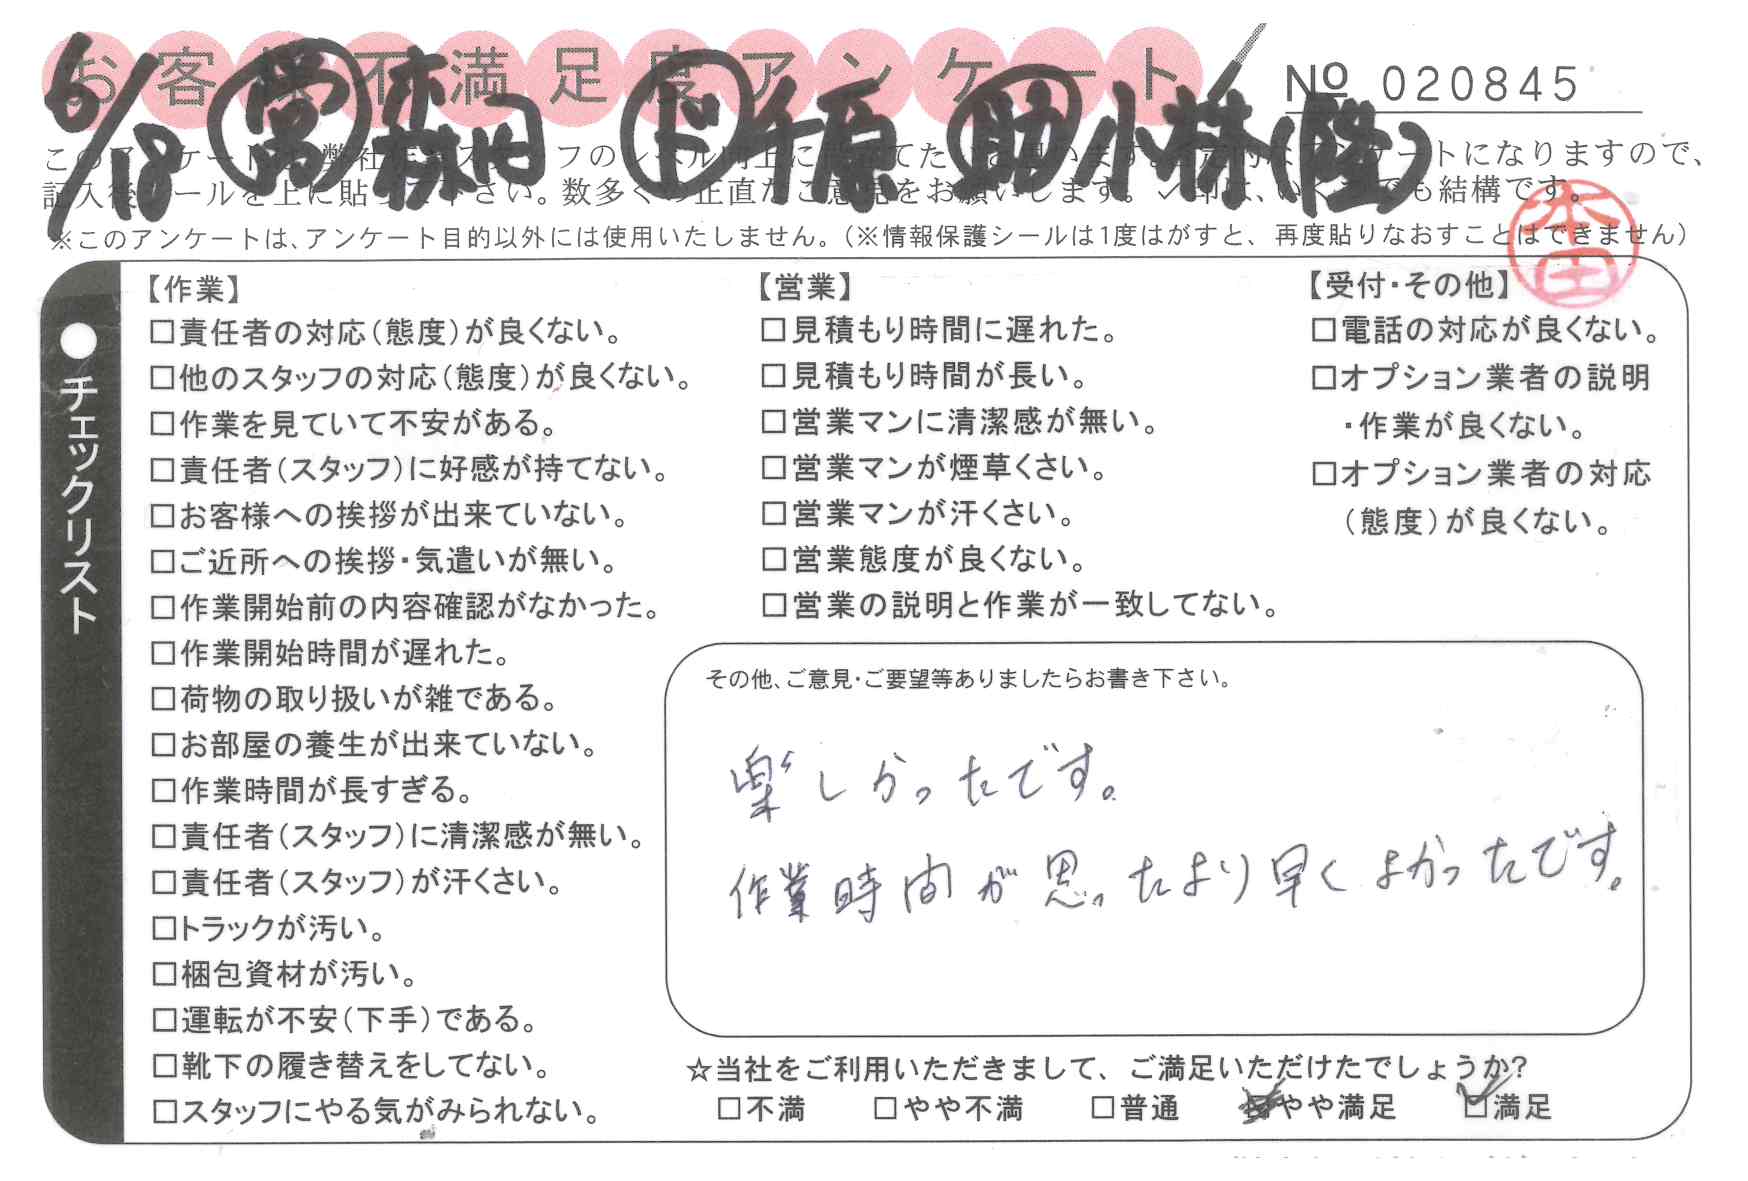 お客様不満足度アンケート
№ 020845
6/18 営 森田 ド 千原 助 小林(隆)
記入後シールを上に貼って下さい。数多くの正直なご意見をお願いします。✓印は、いくつでも結構です。
※このアンケートは、アンケート目的以外には使用いたしません。(※情報保護シールは1度はがすと、再度貼りなおすことはできません)
本田
●チェックリスト
【作業】
□責任者の対応(態度)が良くない。
□他のスタッフの対応(態度)が良くない。
□作業を見ていて不安がある。
□責任者(スタッフ)に好感が持てない。
□お客様への挨拶が出来ていない。
□ご近所への挨拶・気遣いが無い。
□作業開始前の内容確認がなかった。
□作業開始時間が遅れた。
□荷物の取り扱いが雑である。
□お部屋の養生が出来ていない。
□作業時間が長すぎる。
□責任者(スタッフ)に清潔感が無い。
□責任者(スタッフ)が汗くさい。
□トラックが汚い。
□梱包資材が汚い。
□運転が不安(下手)である。
□靴下の履き替えをしてない。
□スタッフにやる気がみられない。
【営業】
□見積もり時間に遅れた。
□見積もり時間が長い。
□営業マンに清潔感が無い。
□営業マンが煙草くさい。
□営業マンが汗くさい。
□営業態度が良くない。
□営業の説明と作業が一致してない。
【受付・その他】
□電話の対応が良くない。
□オプション業者の説明
・作業が良くない。
□オプション業者の対応
(態度)が良くない。
その他、ご意見・ご要望等ありましたらお書き下さい。
楽しかったです。
作業時間が思ったより早くよかったです。
☆当社をご利用いただきまして、ご満足いただけたでしょうか?
□不満 □やや不満 □普通 □やや満足 ☑満足